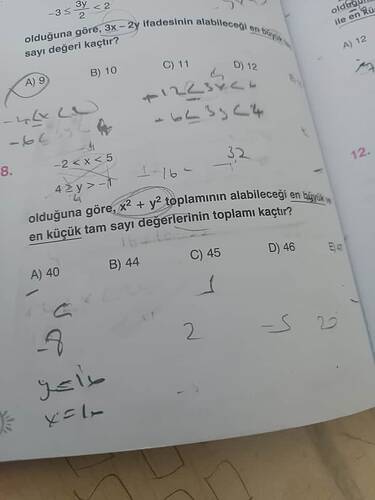 -3 ≤ 3y/2 < 2
olduğuna göre, 3x – 2y ifadesinin alabileceği en büyük
sayı değeri kaçtır?
A) 9 B) 10 C) 11 D) 12
+12 ≤ 3x < 6
-6 ≤ 3y < 4
8.
-2 < x < 5
4 ≥ y > -1
32
olduğuna göre, x² + y² toplamının alabileceği en büyük ve
en küçük tam sayı değerlerinin toplamı kaçtır?
A) 40 B) 44 C) 45 D) 46 E)
1
-8 2 -5 20
ile en
A) 12
12.